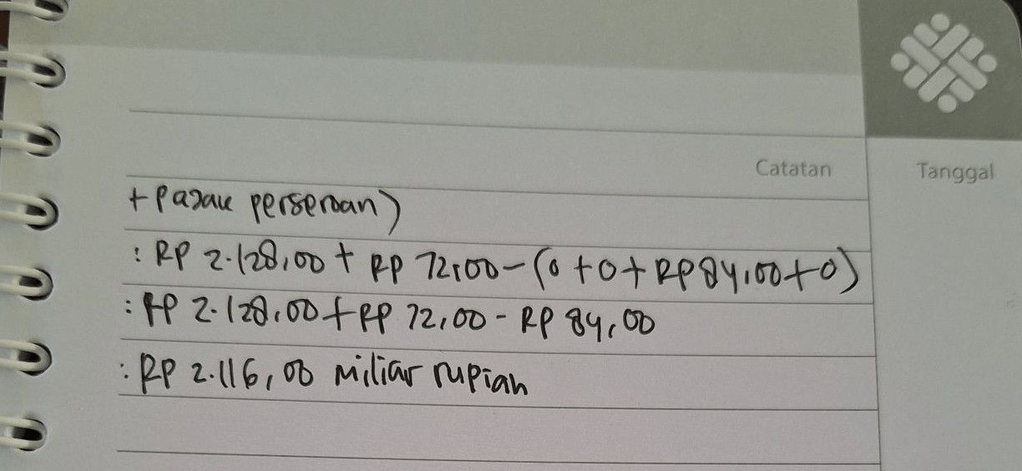 Catatan
Tanggal
+ Pajak perseroan)
: RP 2.128,00 + RP 72,00 - (0 + 0 + RP 84,00 + 0)
: RP 2.128,00 + RP 72,00 - RP 84,00
: RP 2.116,00 Miliar rupiah